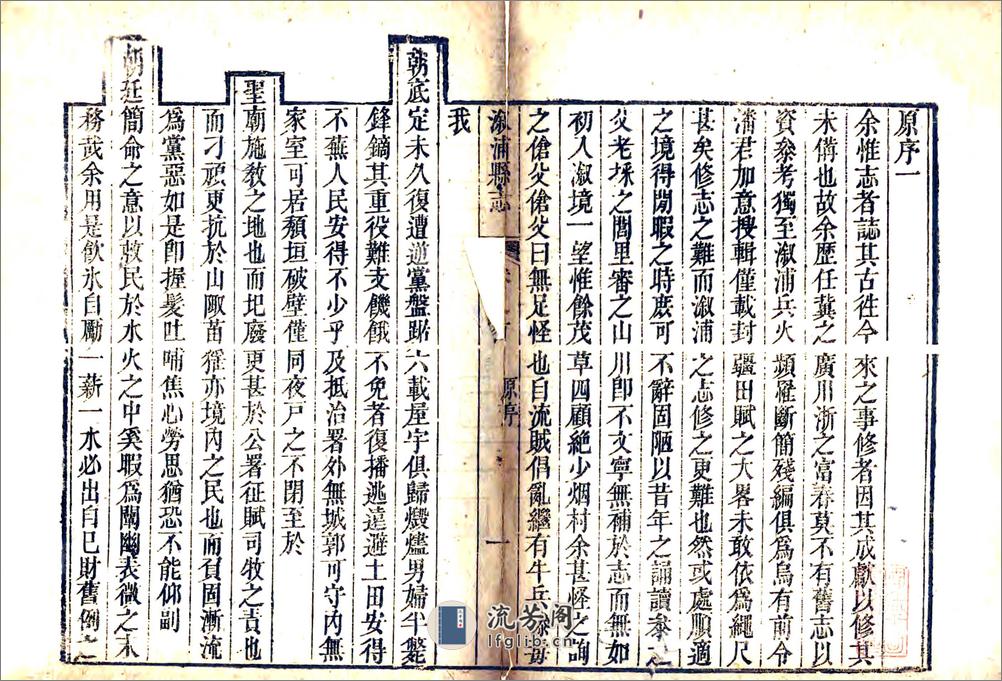 原序一
余惟志者誌其古徃今來之事修者因其成獻以修其
未備也故余歷任冀之廣川浙之富春莫不有舊志以
資叅考獨至漵浦兵火頻罹斷簡殘編俱爲烏有前令
潘君加意搜輯僅載封疆田賦之大畧未敢依爲繩尺
甚矣修志之難而漵浦之志修之更難也然或處順適
之境得閒暇之時庶可不辭固陋以昔年之誦讀叅之
父老採之閭里審之山川卽不文寧無補於志而無如
初入漵境一望惟餘茂草四顧絶少烟村余甚怪之詢
之傖父傖父曰無足怪也自流賊倡亂繼有牛兵
漵浦縣志
原序
一
我
朝底定未久復遭逆黨盤踞六載屋宇俱歸燬燼男婦半斃
鋒鏑其重役難支饑餓不免者復播逃遠避土田安得
不蕪人民安得不少乎及抵治署外無城郭可守內無
家室可居頽垣破壁僅同夜戸之不閉至於
聖廟施敎之地也而圮廢更甚於公署征賦司牧之責也
而刁頑更抗於山陬苗猺亦境內之民也而負固漸流
爲黨惡如是卽握髮吐哺焦心勞思猶恐不能仰副
朝廷簡命之意以救民於水火之中奚暇爲闡幽表微之末
務哉余用是飲氷自勵一薪一水必出自已財舊例之
流芳阁
lfglib.cn